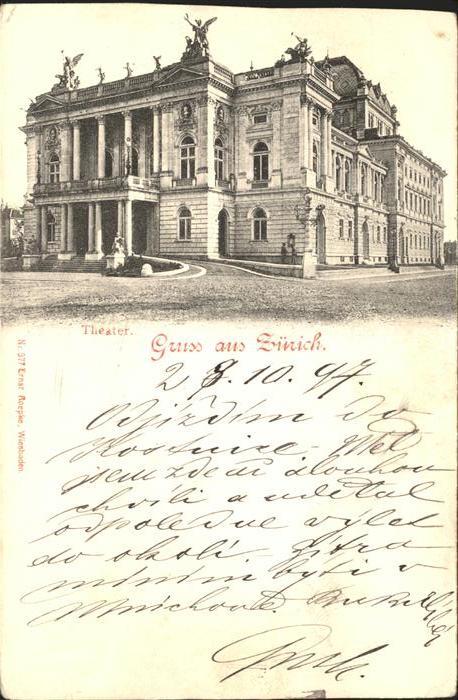 Theater.
Gruss aus Zürich.
Nr. 977 Ernst Roepke, Wiesbaden
28.10.97.
Odjíždím do
Kostnice. Měl
jsem zde dlouhou
chvíli a udělal
odpoledne výlet
do okolí. Zítra
míním býti v
Mnichově.